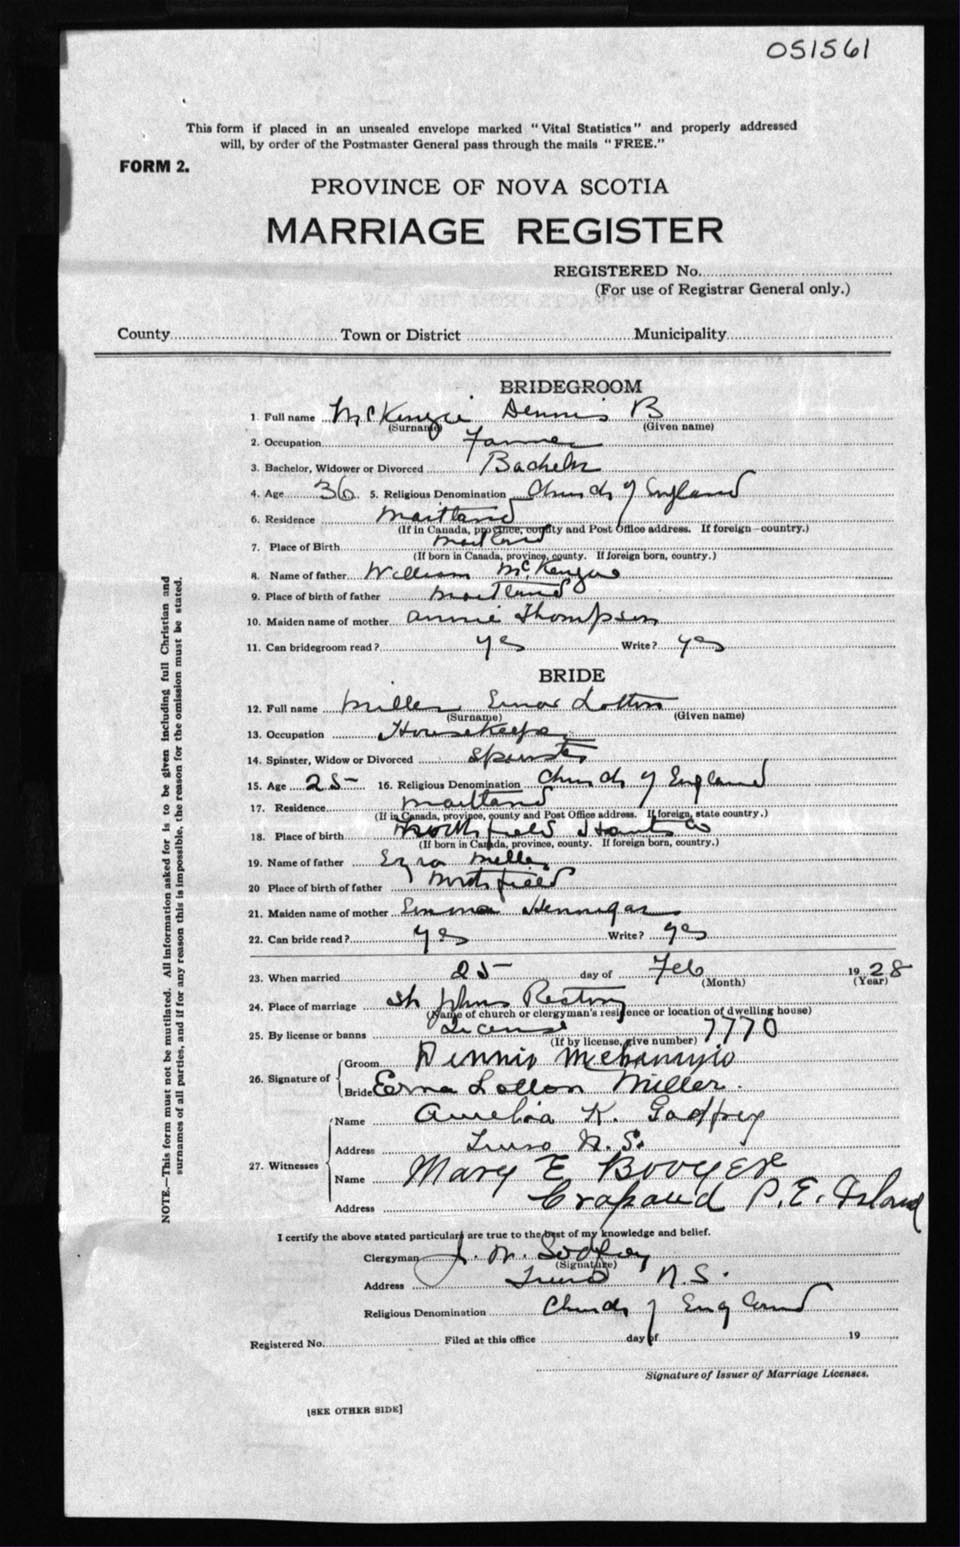 051561
This form if placed in an unsealed envelope marked "Vital Statistics" and properly addressed
will, by order of the Postmaster General pass through the mails "FREE."
FORM 2.
PROVINCE OF NOVA SCOTIA
MARRIAGE REGISTER
REGISTERED No.
(For use of Registrar General only.)
County Town or District Municipality
BRIDEGROOM
1. Full name McKenzie Dennis B
(Surname) (Given name)
2. Occupation Farmer
3. Bachelor, Widower or Divorced Bachelor
4. Age 36 5. Religious Denomination Church of England
6. Residence Maitland
(If in Canada, province, county and Post Office address. If foreign country.)
7. Place of Birth Maitland
(If born in Canada, province, county. If foreign born, country.)
8. Name of father William McKenzie
9. Place of birth of father Maitland
10. Maiden name of mother Annie Thompson
11. Can bridegroom read? yes Write? yes
BRIDE
12. Full name Miller Erna Lotton
(Surname) (Given name)
13. Occupation Housekeeper
14. Spinster, Widow or Divorced Spinster
15. Age 25 16. Religious Denomination Church of England
17. Residence Maitland
(If in Canada, province, county and Post Office address. If foreign, state country.)
18. Place of birth Northfield Hants Co
(If born in Canada, province, county. If foreign born, country.)
19. Name of father Ezra Miller
20 Place of birth of father Northfield
21. Maiden name of mother Emma Hennigar
22. Can bride read? yes Write? yes
23. When married 25 day of Feb 1928
(Month) (Year)
24. Place of marriage St Johns Rectory
(Name of church or clergyman's residence or location of dwelling house)
25. By license or banns License 7770
(If by license, give number)
26. Signature of Groom Dennis
Bride Erna Lotton Miller.
27. Witnesses
Name Amelia K. Godfrey
Address Truro N.S.
Name Mary E
Address Crapaud P.E. Island
I certify the above stated particulars are true to the best of my knowledge and belief.
Clergyman J. W. Godfrey
(Signature)
Address Truro N.S.
Religious Denomination Church of England
Registered No. Filed at this office day of 19
Signature of Issuer of Marriage Licenses.
[SEE OTHER SIDE]
NOTE.—This form must not be mutilated. All information asked for is to be given including full Christian and
surnames of all parties, and if for any reason this is impossible, the reason for the omission must be stated.